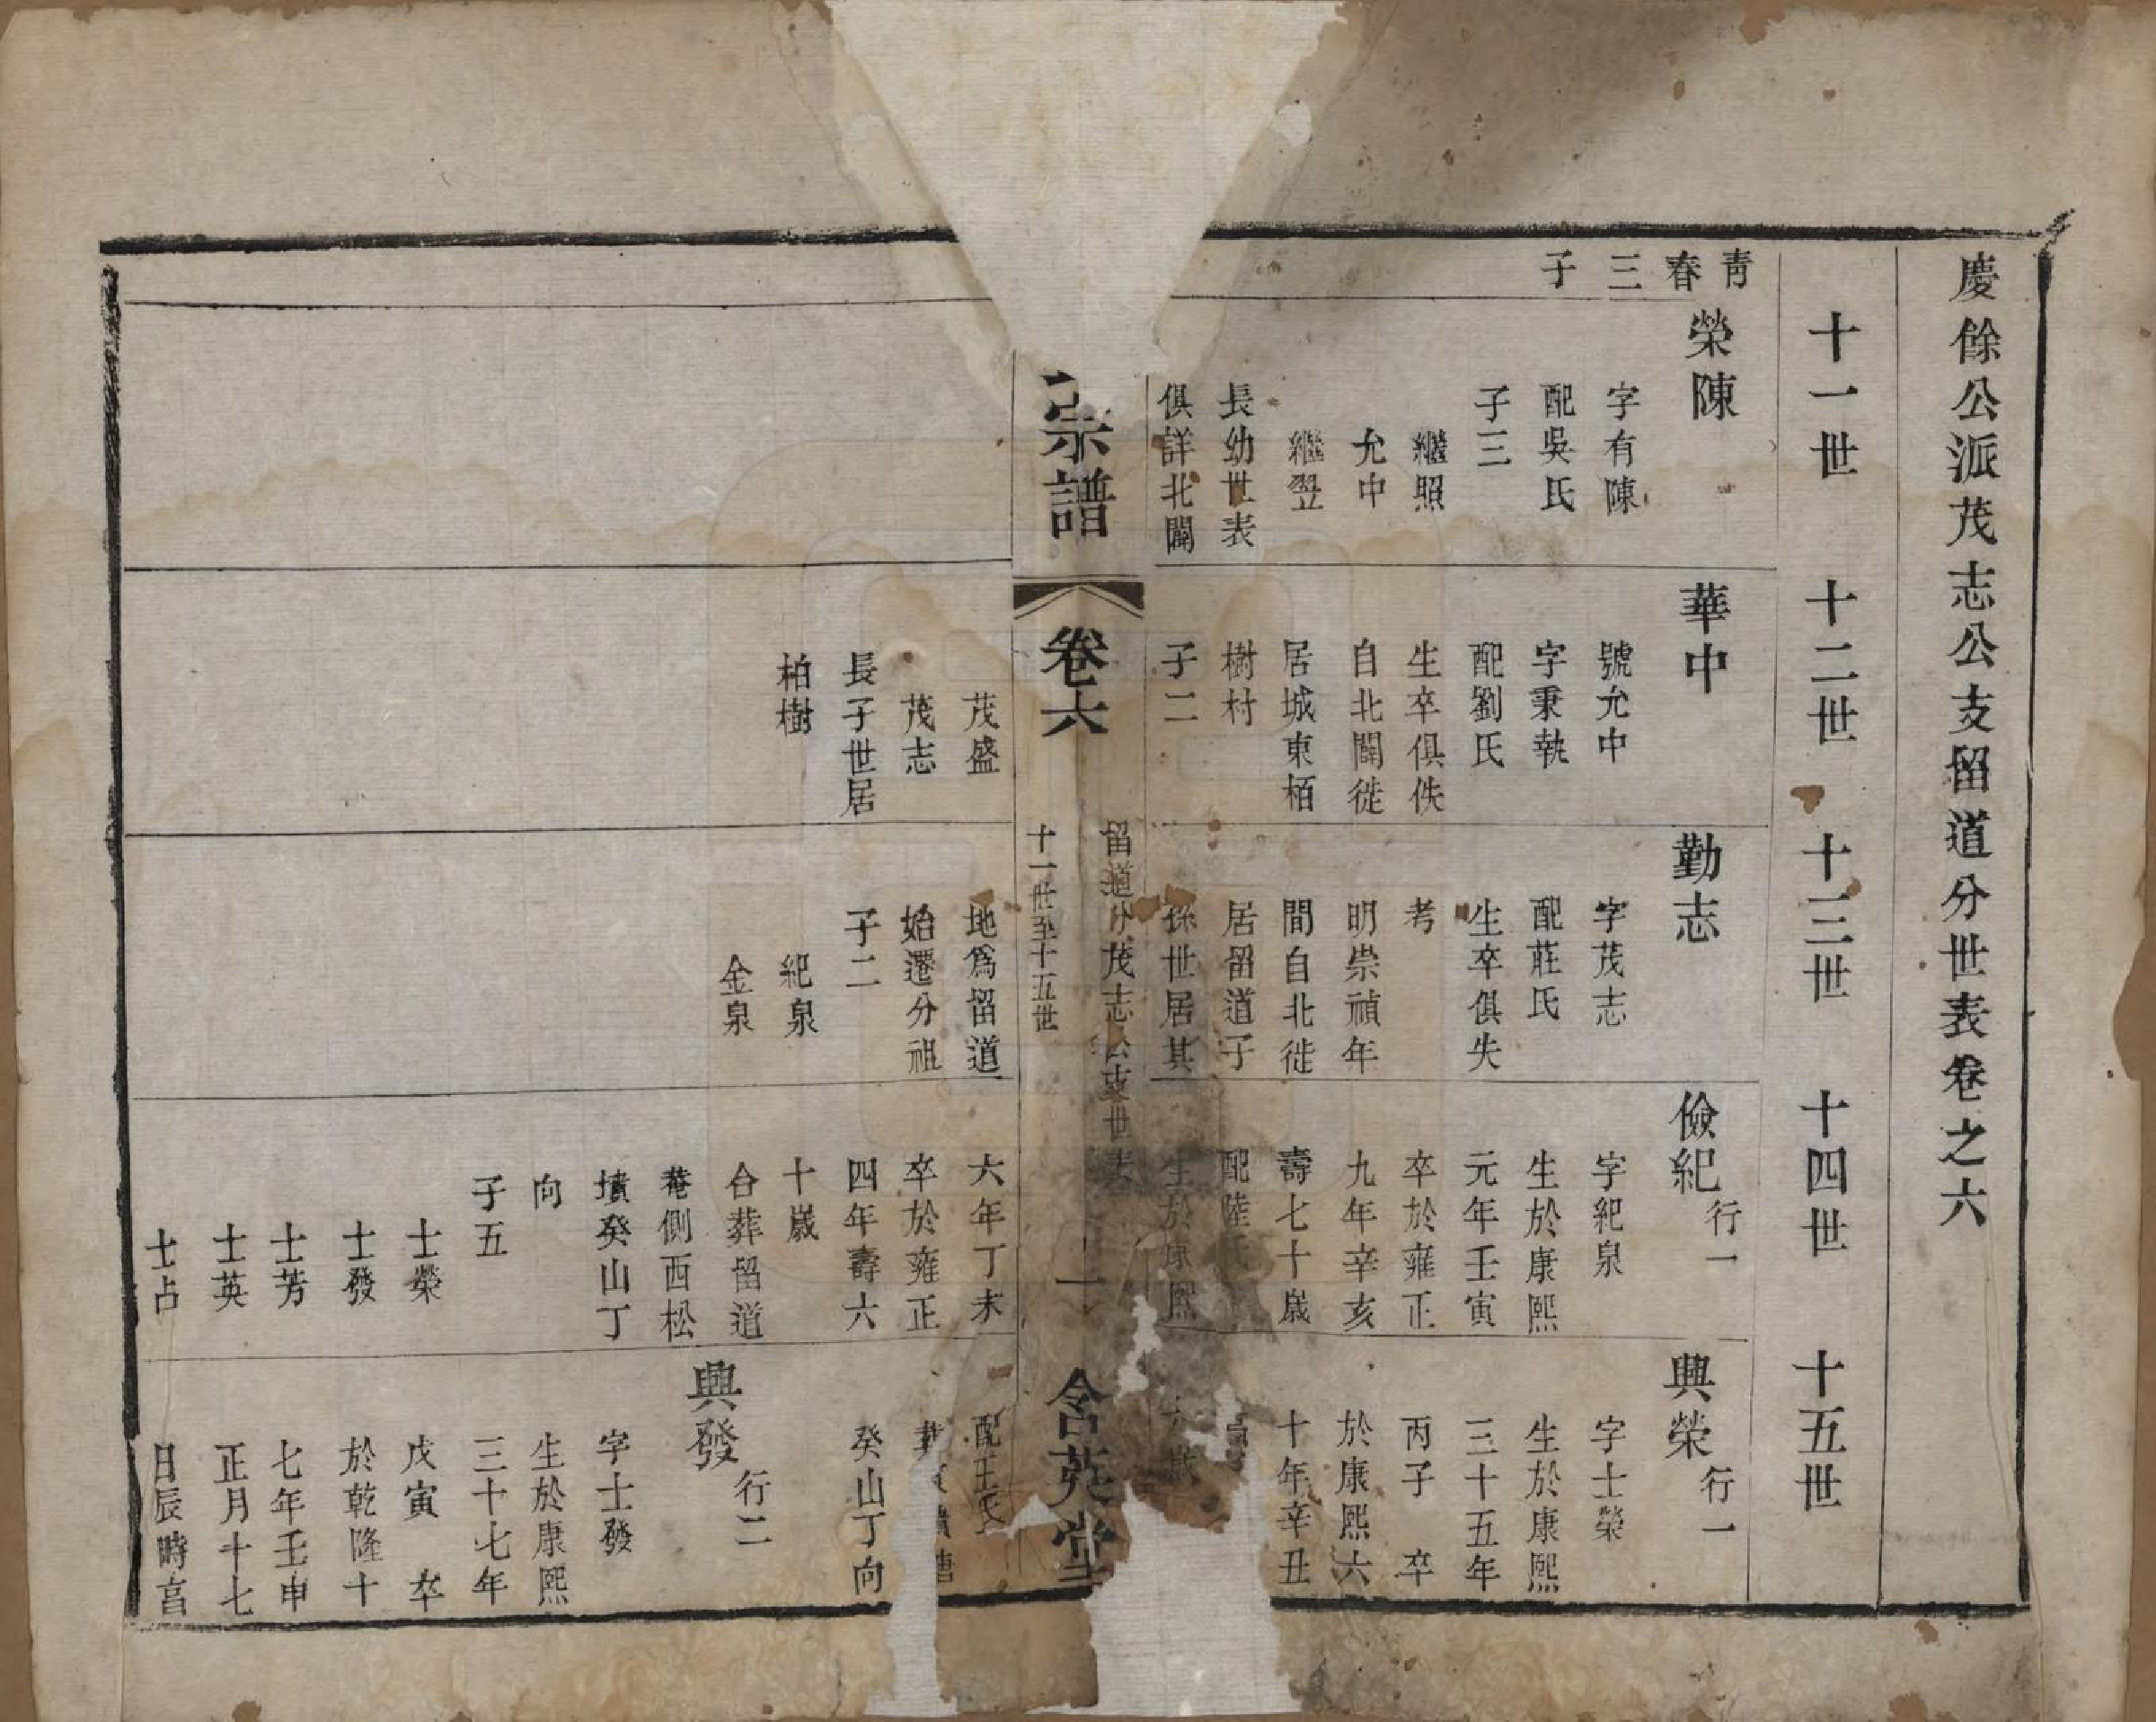 慶餘公派茂志公支留道分世表卷之六
十一世
十二世
十三世
十四世
十五世
青
春
三
子
榮陳
字有陳
配吳氏
子三
繼照
允中
繼翌
長幼世表
俱詳北關
華中
號允中
字秉執
配劉氏
生卒俱佚
自北關徙
居城東栢
樹村
子二
茂盛
茂志
長子世居
柏樹
勤志
字茂志
配莊氏
生卒俱失
考
明崇禎年
間自北徙
居留道子
孫世居其
地爲留道
始遷分祖
子二
紀泉
金泉
儉紀 行一
字紀泉
生於康熙
元年壬寅
卒於雍正
九年辛亥
壽七十歲
配陸氏
生於康熙
六年丁未
卒於雍正
四年壽六
十歲
合葬留道
菴側西松
墳癸山丁
向
子五
士榮
士發
士芳
士英
士占
興榮 行一
字士榮
生於康熙
三十五年
丙子 卒
於康熙六
十年辛丑
配王氏
癸山丁向
興發 行二
字士發
生於康熙
三十七年
戊寅 卒
於乾隆十
七年壬申
正月十七
日辰時享
宗譜
卷六
留道分茂志公支世表
十一世至十五世
一
含英堂